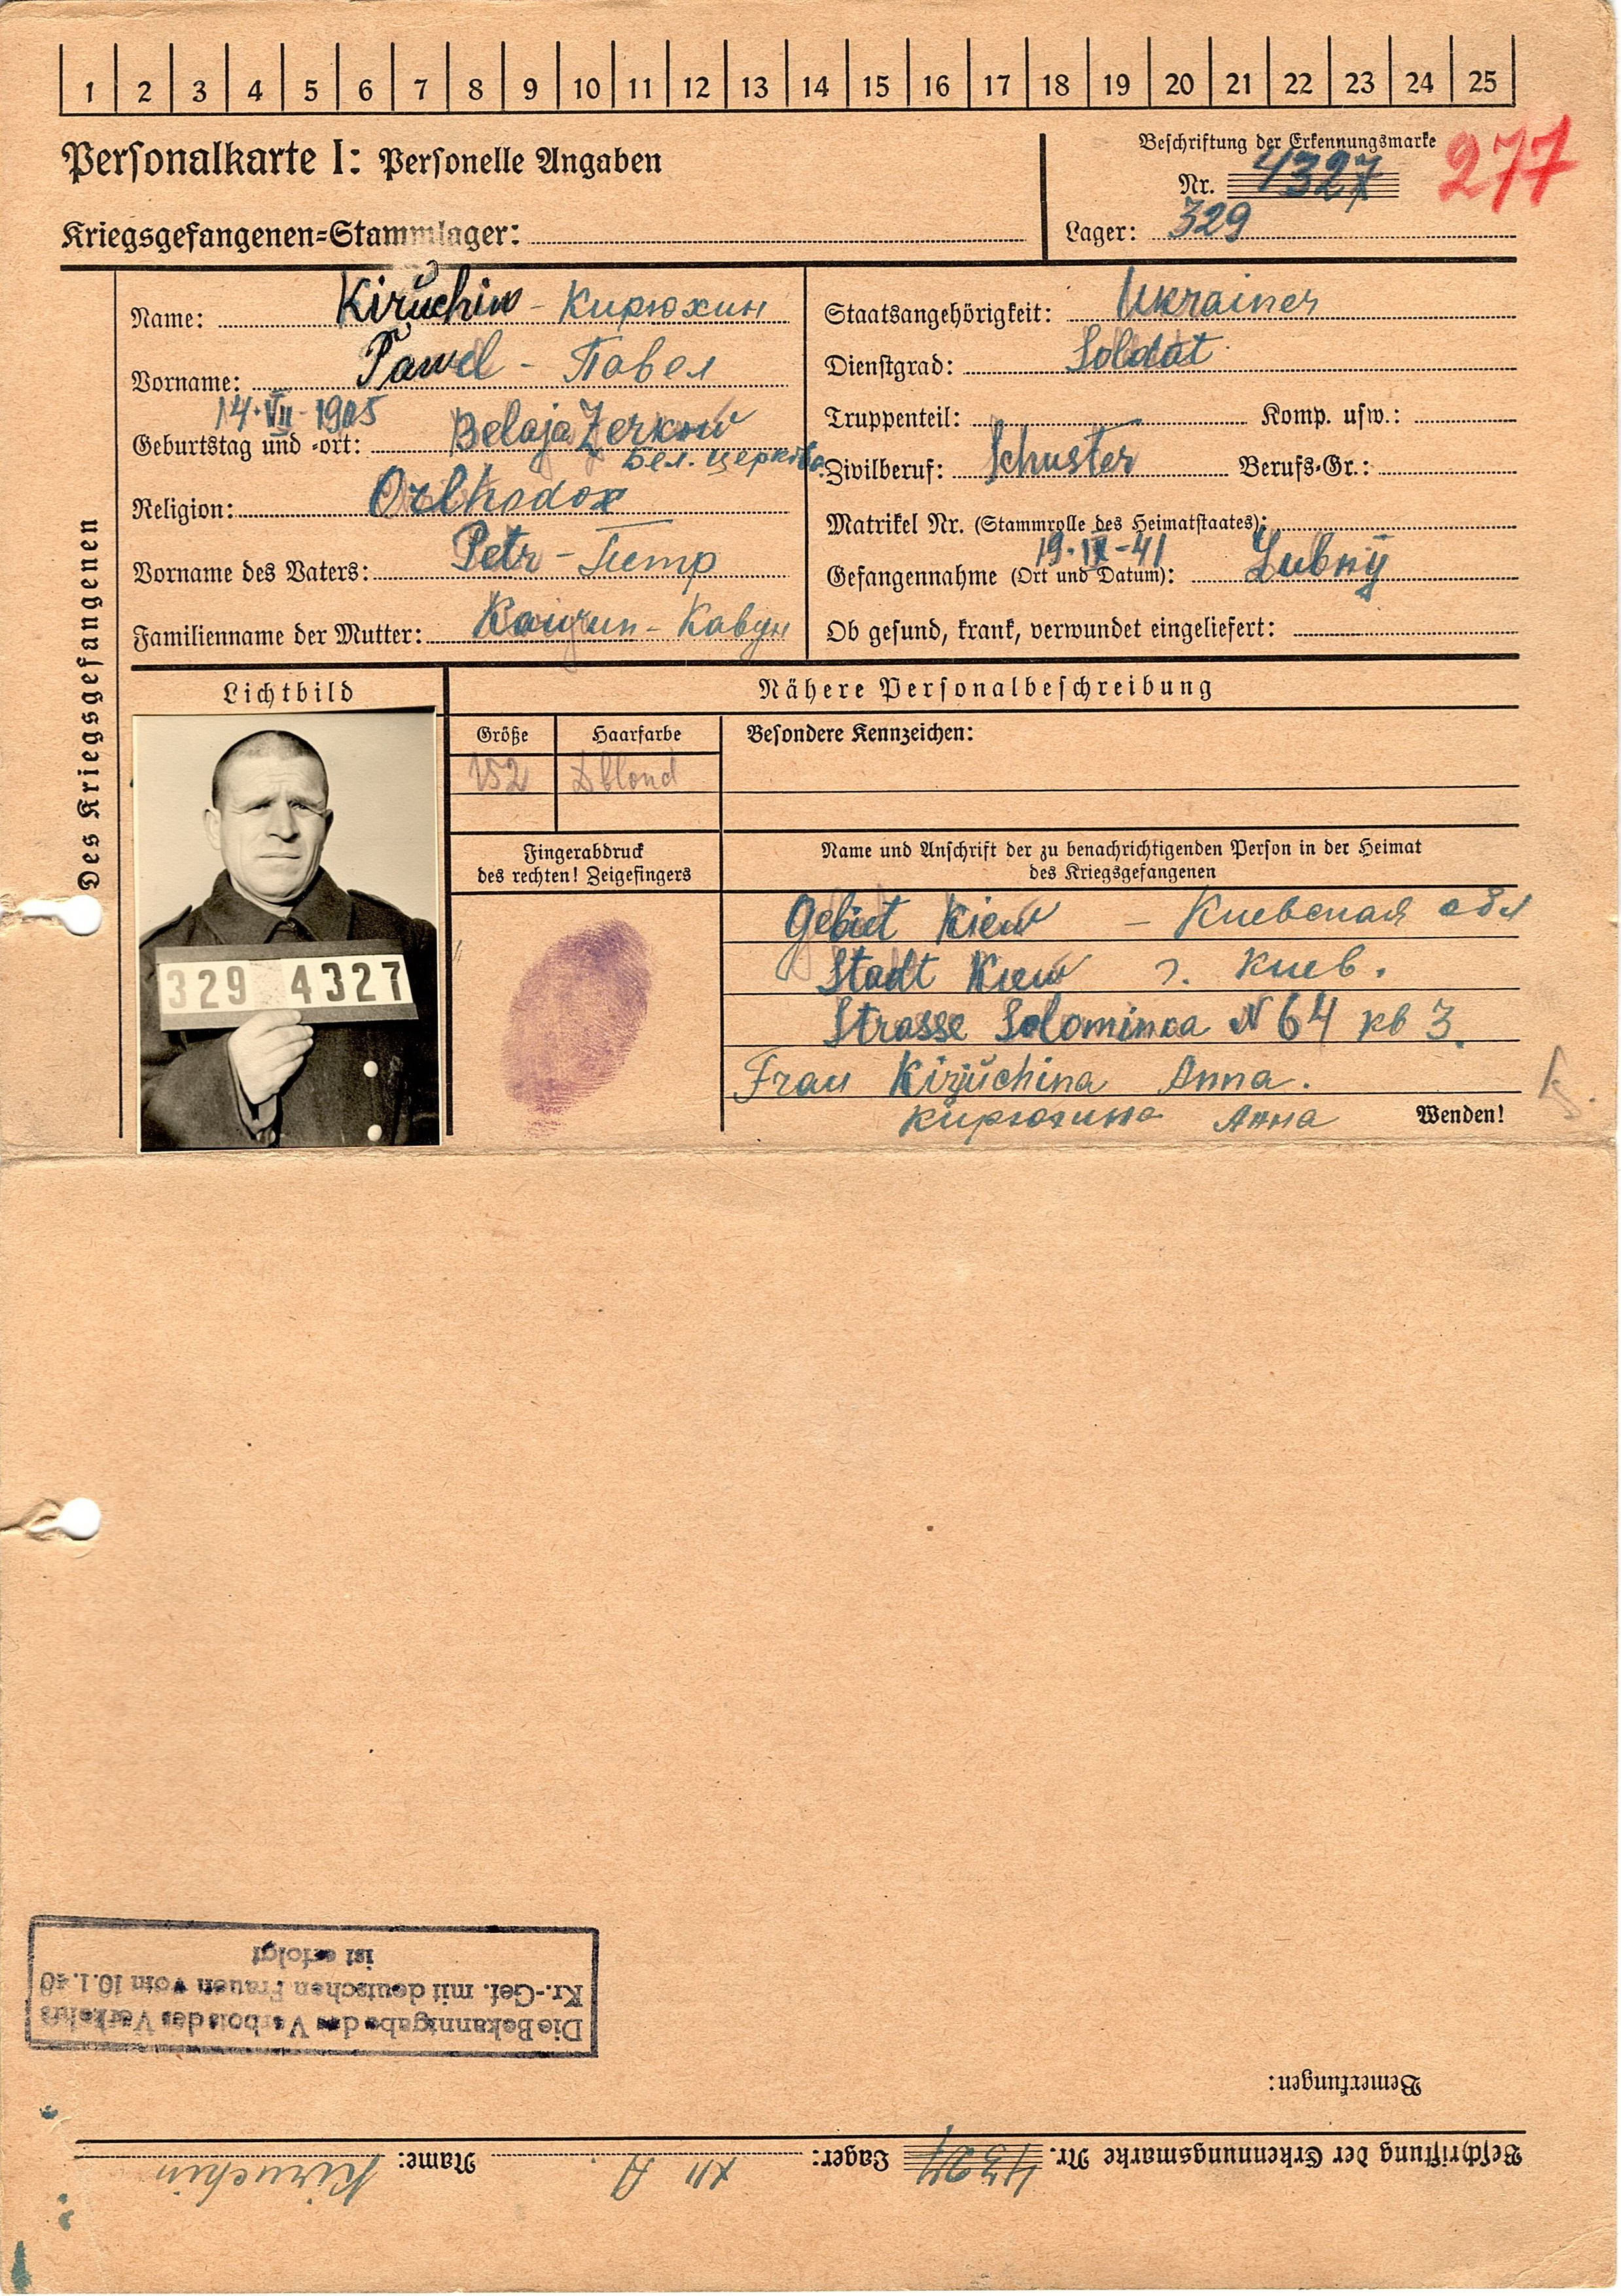 1 2 3 4 5 6 7 8 9 10 11 12 13 14 15 16 17 18 19 20 21 22 23 24 25
Personalkarte I: Personelle Angaben
Kriegsgefangenen=Stammlager:
Beschriftung der Erkennungsmarke
Nr. 4327
277
Lager: 329
Des Kriegsgefangenen
Name: Kirŭchin - Кирюхин
Vorname: Pawel - Павел
14·VII-1905
Geburtstag und -ort: Belaja Zerkow
Бел. церковь
Religion: Orthodox
Vorname des Vaters: Petr - Петр
Familienname der Mutter: Kawun - Кавун
Staatsangehörigkeit: Ukrainer
Dienstgrad: Soldat
Truppenteil: Komp. usw.:
Zivilberuf: Schuster Berufs-Gr.:
Matrikel Nr. (Stammrolle des Heimatstaates):
19·IX-41
Gefangennahme (Ort und Datum): Lubnÿ
Ob gesund, krank, verwundet eingeliefert:
Lichtbild
329 4327
Nähere Personalbeschreibung
Größe Haarfarbe Besondere Kennzeichen:
152 Dblond
Fingerabdruck
des rechten! Zeigefingers
Name und Anschrift der zu benachrichtigenden Person in der Heimat
des Kriegsgefangenen
Gebiet Kiew - Киевская обл
Stadt Kiew г. Киев.
Strasse Solominca N 64 кв 3.
Frau Kirjŭchina Anna.
Кирюхина Анна
Wenden!
Die Bekanntgabe des Verbots des Verkehrs
Kr.-Gef. mit deutschen Frauen vom 10.1.40
ist erfolgt
Bemerkungen:
Beschriftung der Erkennungsmarke Nr. 4327 Lager: XII A. Name: Kiruchin